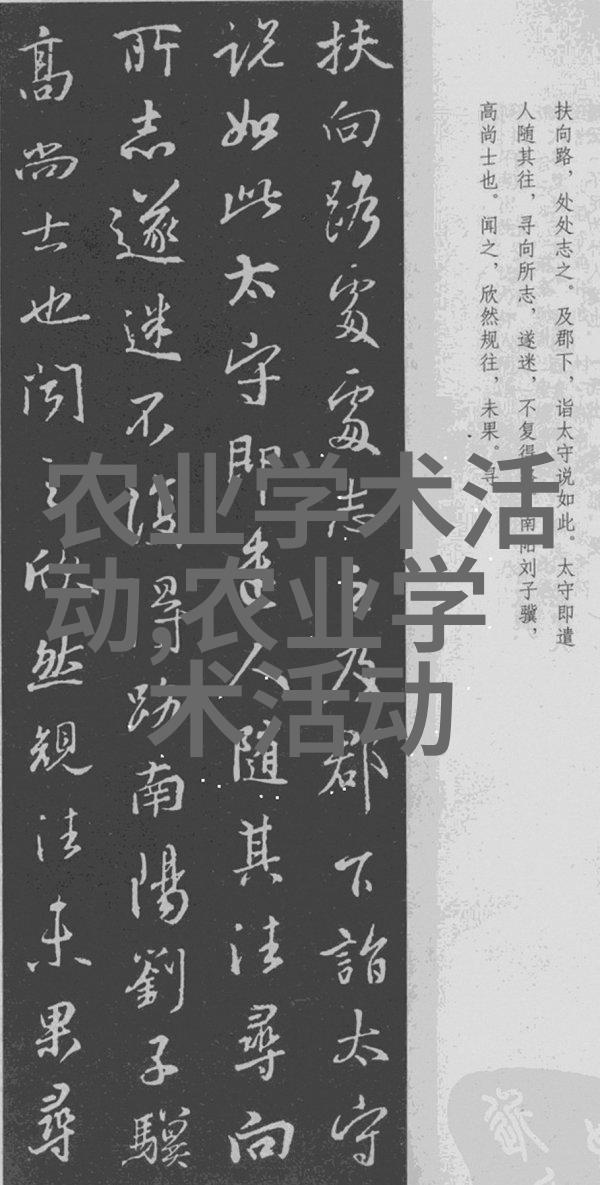 扶向路處處志之及郡下詣太守
说如此太守即遣人隨其往尋向
所志遂迷不復得路南陽劉子驥
高尚士也聞之欣然規往未果尋
扶向路，处处志之。及郡下，诣太守说如此。太守即遣
人随其往，寻向所志，遂迷，不复得
南阳刘子骥，
高尚士也。闻之，欣然规往，未果。寻
农业学术活
动,农业学
术活动